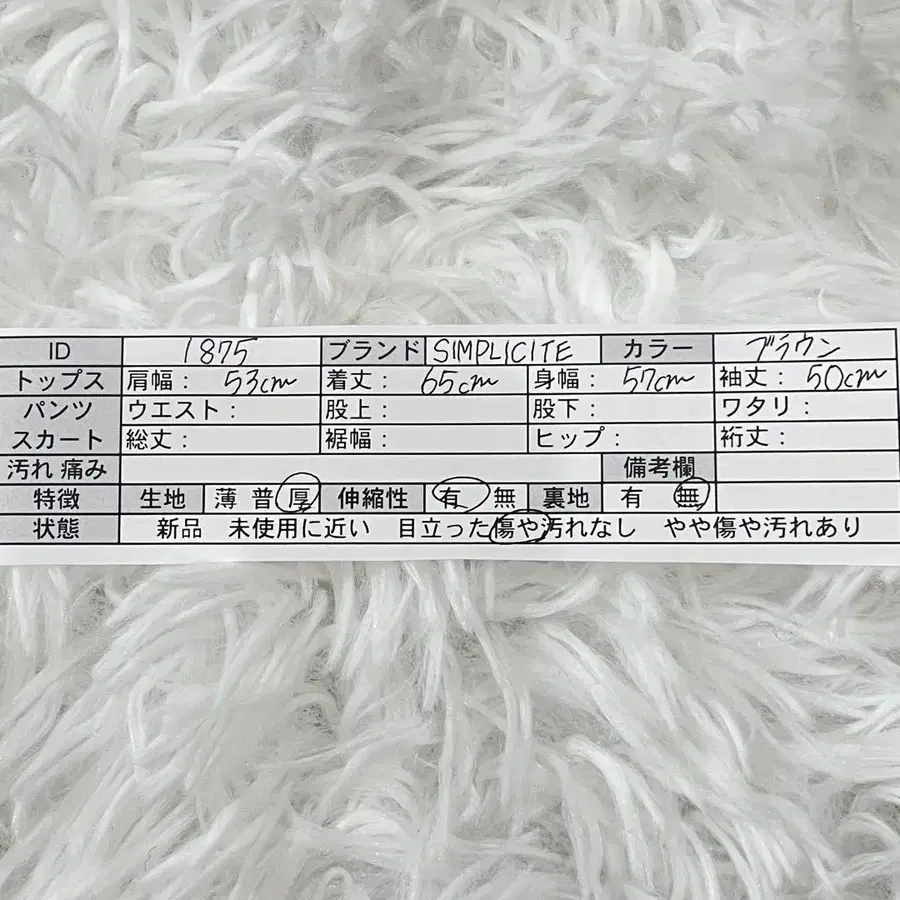 ID 1875 ブランド SIMPLICITE カラー ブラウン
トップス 肩幅: 53cm 着丈: 65cm 身幅: 57cm 袖丈: 50cm
パンツ ウエスト: 股上: 股下: ワタリ:
スカート 総丈: 裾幅: ヒップ: 裄丈:
汚れ 痛み 備考欄
特徴 生地 薄 普 厚 伸縮性 有 無 裏地 有 無
状態 新品 未使用に近い 目立った傷や汚れなし やや傷や汚れあり